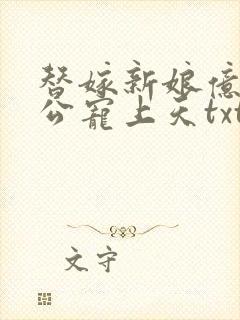 替嫁新娘億
公寵上天txt
文守